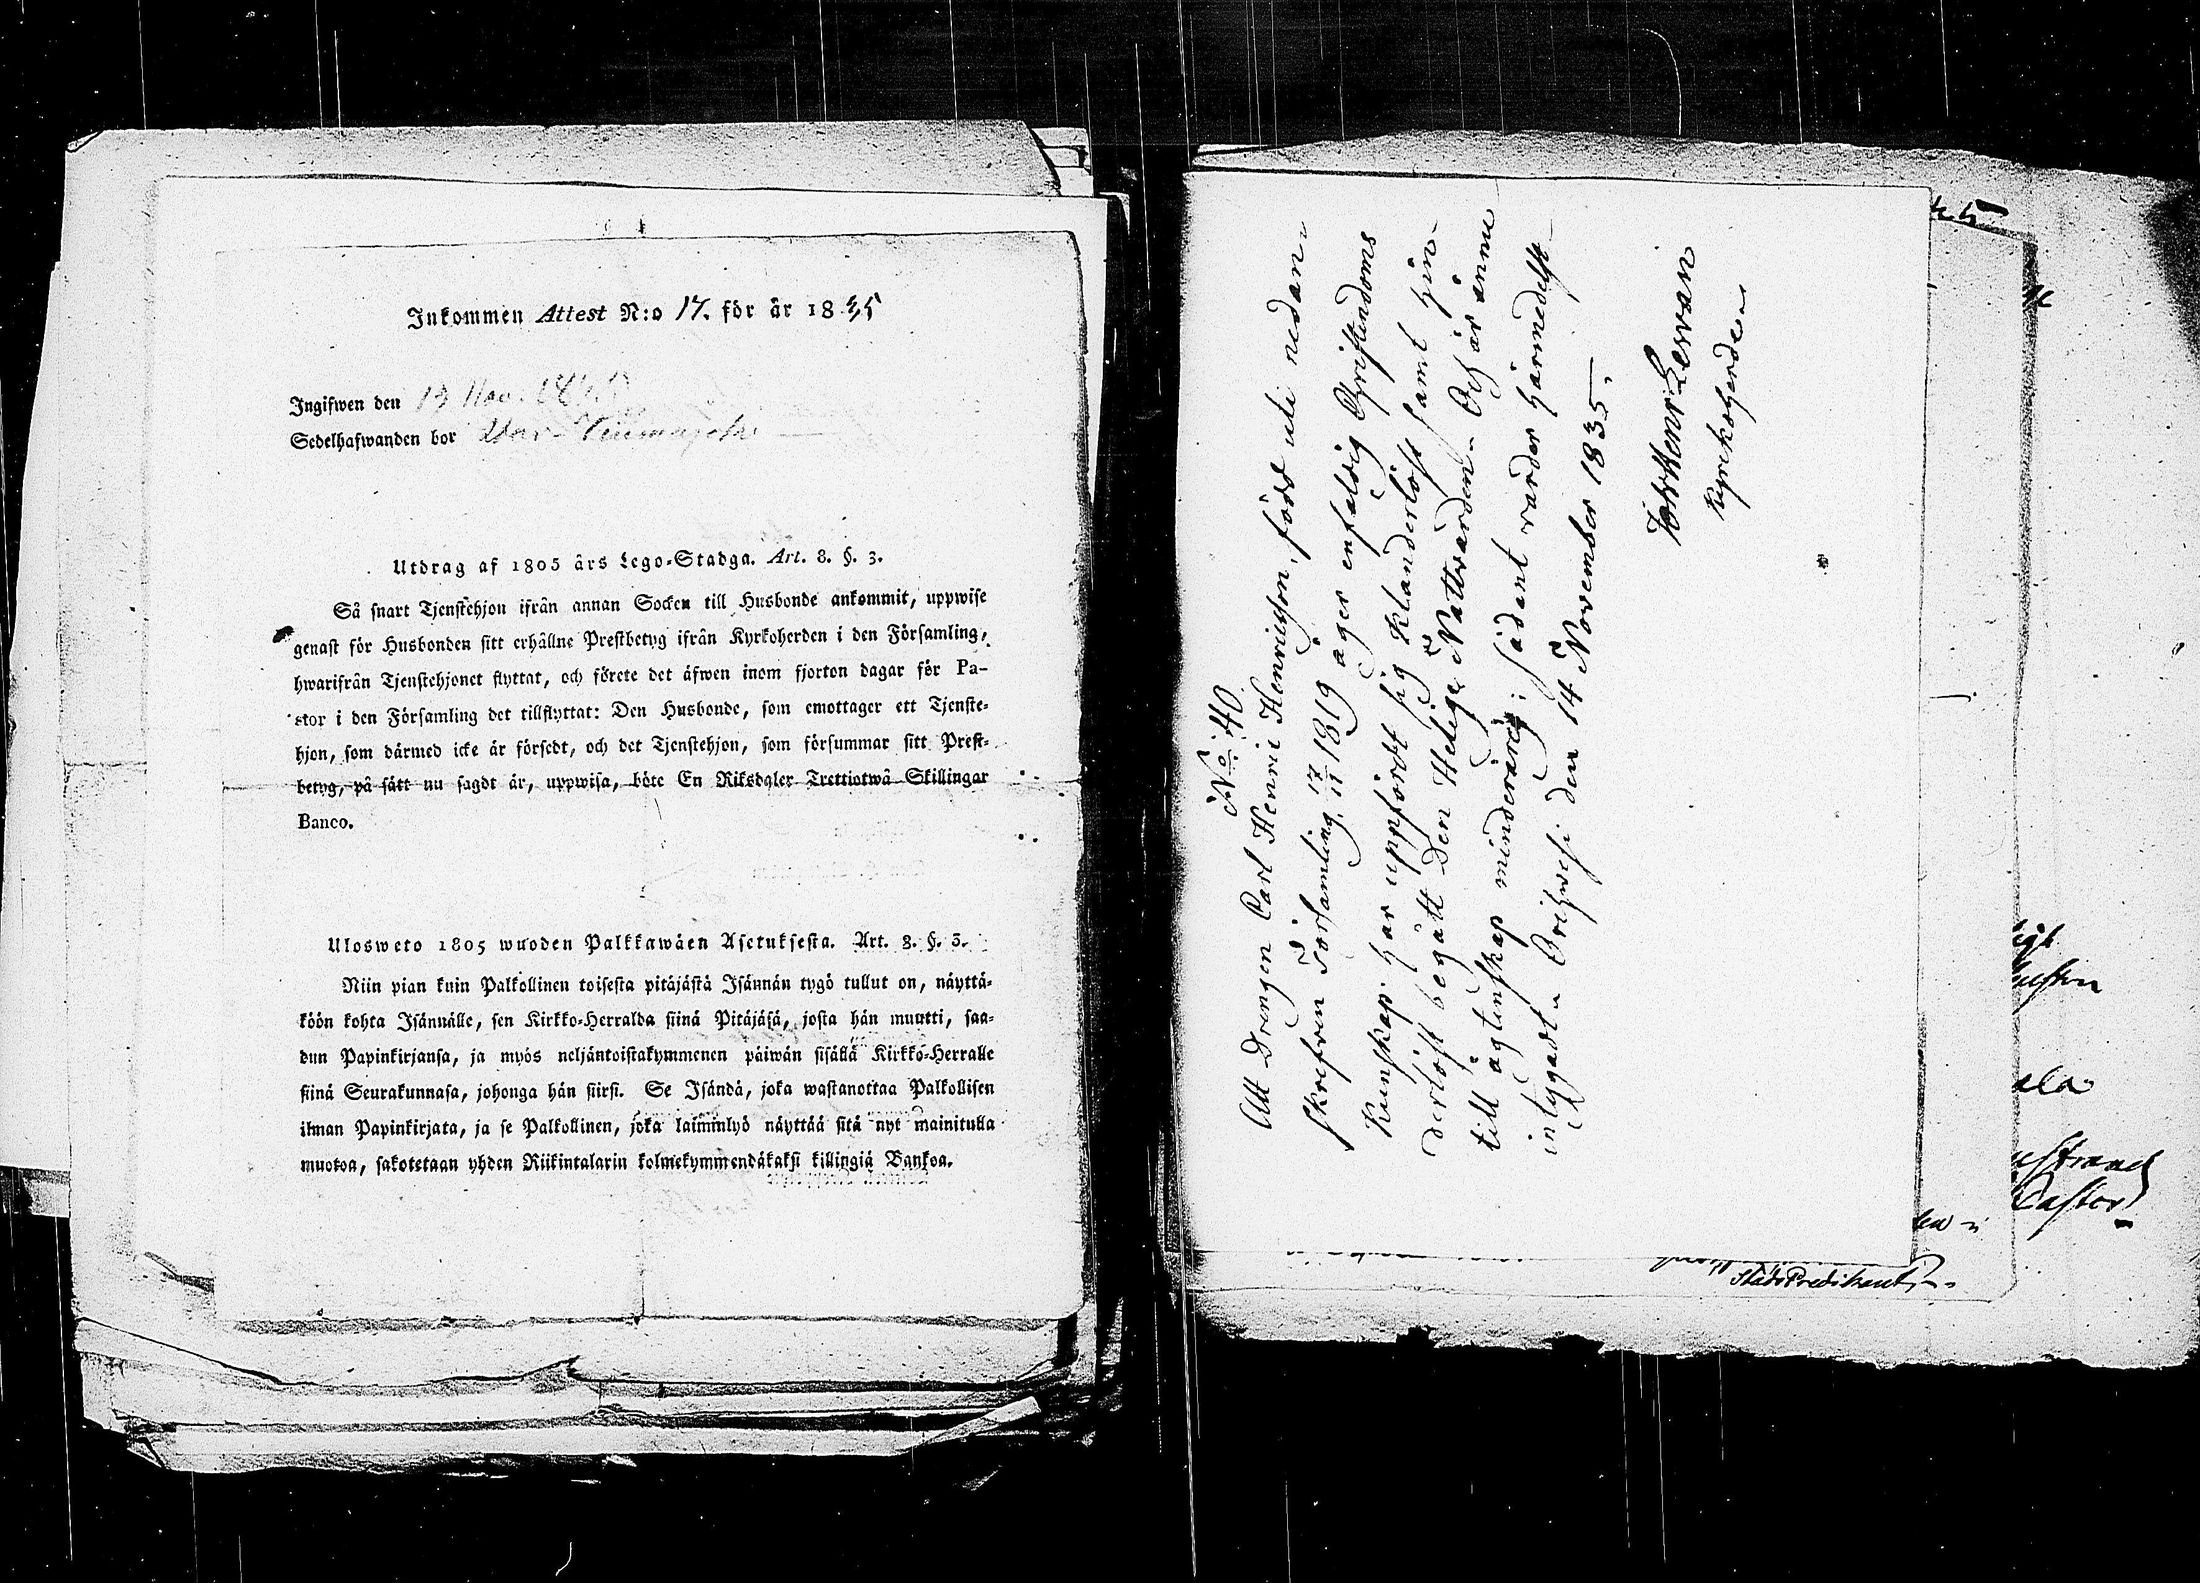 Inkommen Attest N:o 17. för år 1835
Ingifwen den 19 Nov.
Sedelhafwanden bor
Utdrag af 1805 års Lego-Stadga. Art. 8. §. 3.
Så snart Tjenstehjon ifrån annan Socken till Husbonde ankommit, uppwise
genast för Husbonden sitt erhållne Prestbetyg ifrån Kyrkoherden i den Församling,
hwarifrån Tjenstehjonet flyttat, och förete det äfwen inom fjorton dagar för Pa-
stor i den Församling det tillflyttat: Den Husbonde, som emottager ett Tjenste-
hjon, som därmed icke är försedt, och det Tjenstehjon, som försummar sitt Prest-
betyg, på sätt nu sagdt är, uppwisa, böte En Riksdaler Trettiotwå Skillingar
Banco.
Ulosweto 1805 wuoden Palkkawäen Asetuksesta. Art. 8. §. 3.
Niin pian kuin Palkollinen toisesta pitäjästä Isännän tygö tullut on, näyttä-
köön kohta Isännälle, sen Kirkko-Herralda siinä Pitäjäsä, josta hän muutti, saa-
dun Papinkirjansa, ja myös neljäntoistakymmenen päiwän sisällä Kirkko-Herralle
siinä Seurakunnasa, johonga hän siirsi. Se Isändä, joka wastanottaa Palkollisen
ilman Papinkirjata, ja se Palkollinen, joka laiminlyö näyttää sitä nyt mainitulla
muotoa, sakotetaan yhden Riikintalarin kolmekymmendäkaksi killingiä Bankoa.
No. 40.
Att Drengen Carl Henric Henricsson, född uti nedan-
skrefven Församling 17/11 1819 äger enfaldig Christendoms
Kunskap; har uppfördt sig klanderlöst samt hin-
derlöst begått Den Heliga Nattvarden. Och är ännu
till ägtenskap minderårig; sådant varder härmedelst
intygadt. Orihvesi den 14 November 1835.
Joh. Henr. Levan
Kyrckoherde
ela
Pastor
StadsPredikant